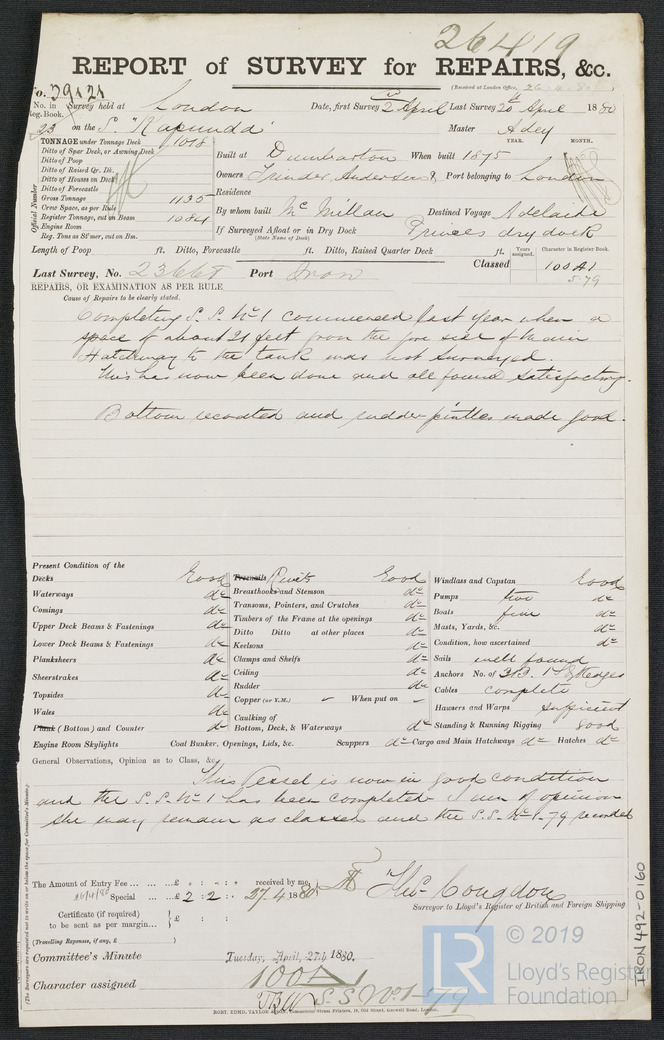 26419
REPORT of SURVEY for REPAIRS, &c.
(Received at London Office,
No. 39121
No. in Survey held at London Date, first Survey 2nd April Last Survey 26th April 1880
Reg. Book.
23 on the S. "Kapunda" Master Adey
TONNAGE under Tonnage Deck 1018
YEAR. MONTH.
Ditto of Spar Deck, or Awning Deck
Ditto of Poop
Ditto of Raised Qr. Dk.
Ditto of Houses on Deck
Ditto of Forecastle
Gross Tonnage 1135
Crew Space, as per Rule
Register Tonnage, cut on Beam 1084
Engine Room
Reg. Tons as St'mer, cut on Bm.
Official Number
Built at Dumbarton When built 1875
Owners Trinder Anderson & Port belonging to London
Residence
By whom built McMillan Destined Voyage Adelaide
If Surveyed Afloat or in Dry Dock Princes dry dock
(State Name of Dock)
Length of Poop ft. Ditto, Forecastle ft. Ditto, Raised Quarter Deck ft.
Years assigned. Character in Register Book.
Last Survey, No. Port Iron Classed 100A1
5-79
REPAIRS, OR EXAMINATION AS PER RULE
Cause of Repairs to be clearly stated.
Completing S. S. No 1 commenced last year when a
space of about 21 feet from the fore side of Main
Hatchway to the tank was not surveyed.
This has now been done and all found satisfactory.
Bottom recoated and rudder pintles made good.
Present Condition of the
Decks Good
Waterways do
Comings do
Upper Deck Beams & Fastenings do
Lower Deck Beams & Fastenings do
Planksheers do
Sheerstrakes do
Topsides do
Wales do
Plank (Bottom) and Counter do
Treenails Rivets Good
Breasthooks and Stemson do
Transoms, Pointers, and Crutches do
Timbers of the Frame at the openings do
Ditto Ditto at other places do
Keelsons do
Clamps and Shelfs do
Ceiling do
Rudder do
Copper (or Y.M.) - When put on -
Caulking of
Bottom, Deck, & Waterways do
Windlass and Capstan Good
Pumps two do
Boats four do
Masts, Yards, &c. do
Condition, how ascertained do
Sails well found
Anchors No. of 3B. 1S. & Kedges
Cables complete
Hawsers and Warps sufficient
Standing & Running Rigging good
Engine Room Skylights Coal Bunker, Openings, Lids, &c. Scuppers do Cargo and Main Hatchways do Hatches do
General Observations, Opinion as to Class, &c.
This Vessel is now in good condition
and the S. S. No 1 has been completed I am of opinion
she may remain as classed and the S.S. No 1-79 recorded
(The Surveyors are requested not to write on or below the space for Committee's Minute.)
The Amount of Entry Fee ... £ : : received by me,
26/4/80 Special ... £ 2 : 2 : 27.4 1880
Thos. Congdon
Surveyor to Lloyd's Register of British and Foreign Shipping
Certificate (if required) £ : :
to be sent as per margin...
(Travelling Expenses, if any, £ )
Committee's Minute Tuesday, April, 27th 1880.
Character assigned 100A1
S.S No1-79
ROBT. EDMD. TAYLOR & SON, Commercial Steam Printers, 19, Old Street, Goswell Road, London.
IRON 492-0160
LR
© 2019
Lloyd's Register
Foundation